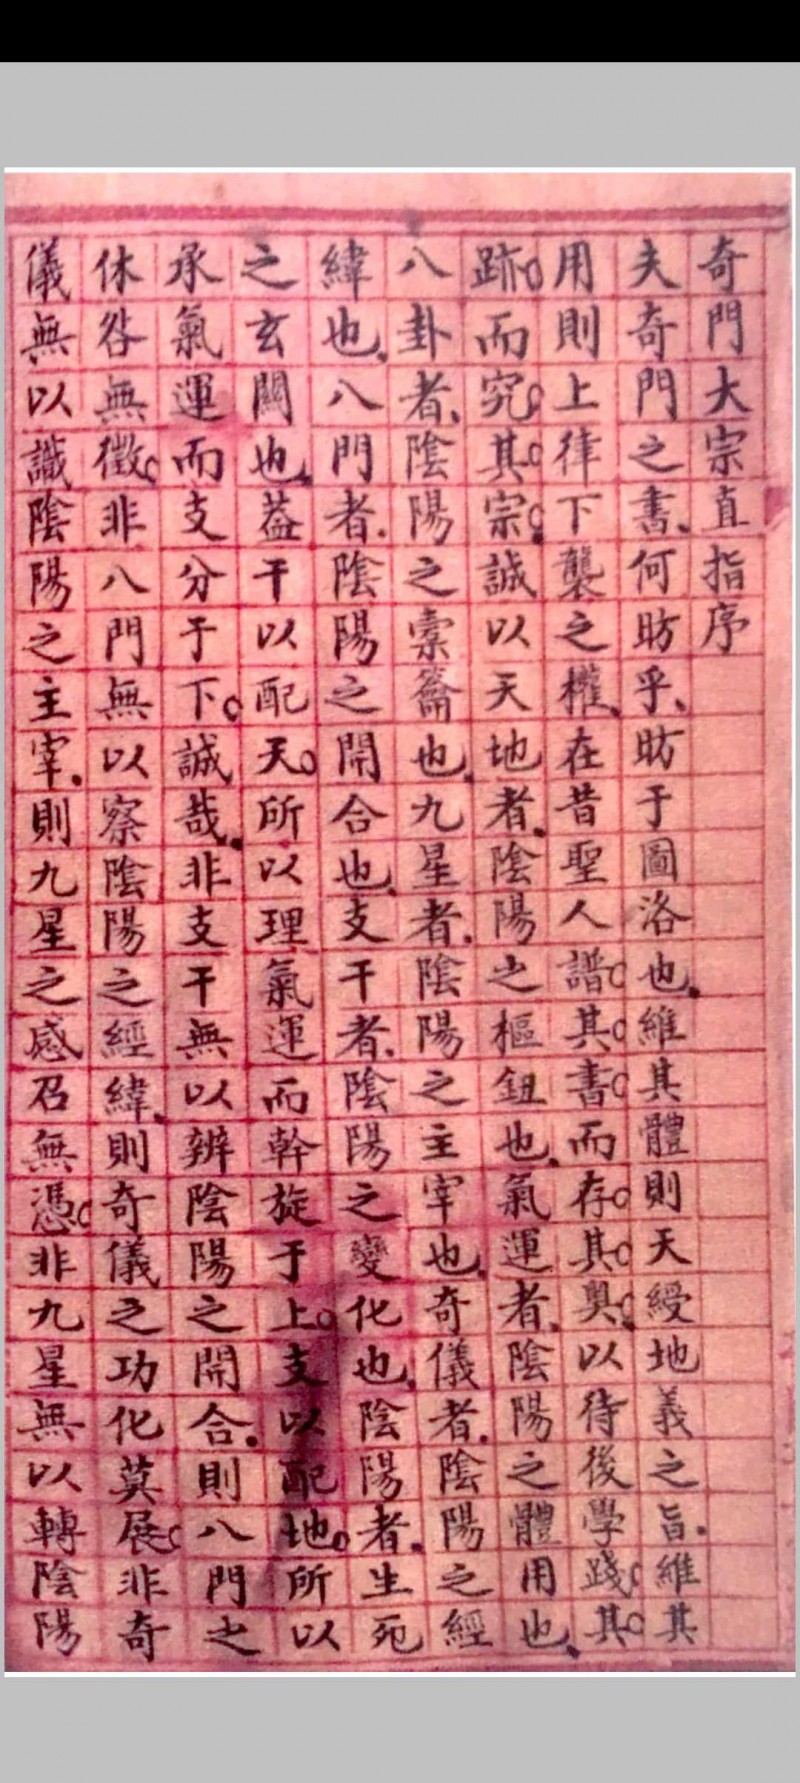 奇門大宗直指序
夫奇門之書、何昉乎、昉于圖洛也、維其體則天經地義之旨、維其
用則上律下襲之權、在昔聖人譜其書而存其奧、以待後學踐其
跡而究其宗、誠以天地者、陰陽之樞鈕也、氣運者、陰陽之體用也、
八卦者、陰陽之橐籥也、九星者、陰陽之主宰也、奇儀者、陰陽之經
緯也、八門者、陰陽之開合也、支干者、陰陽之變化也、陰陽者、生死
之玄關也、葢干以配天。所以理氣運而幹旋于上。支以配地。所以
承氣運而支分于下。誠哉、非支干無以辨陰陽之開合、則八門之
休咎無徵。非八門無以察陰陽之經緯、則奇儀之功化莫展。非奇
儀無以識陰陽之主宰、則九星之感召無憑。非九星無以轉陰陽